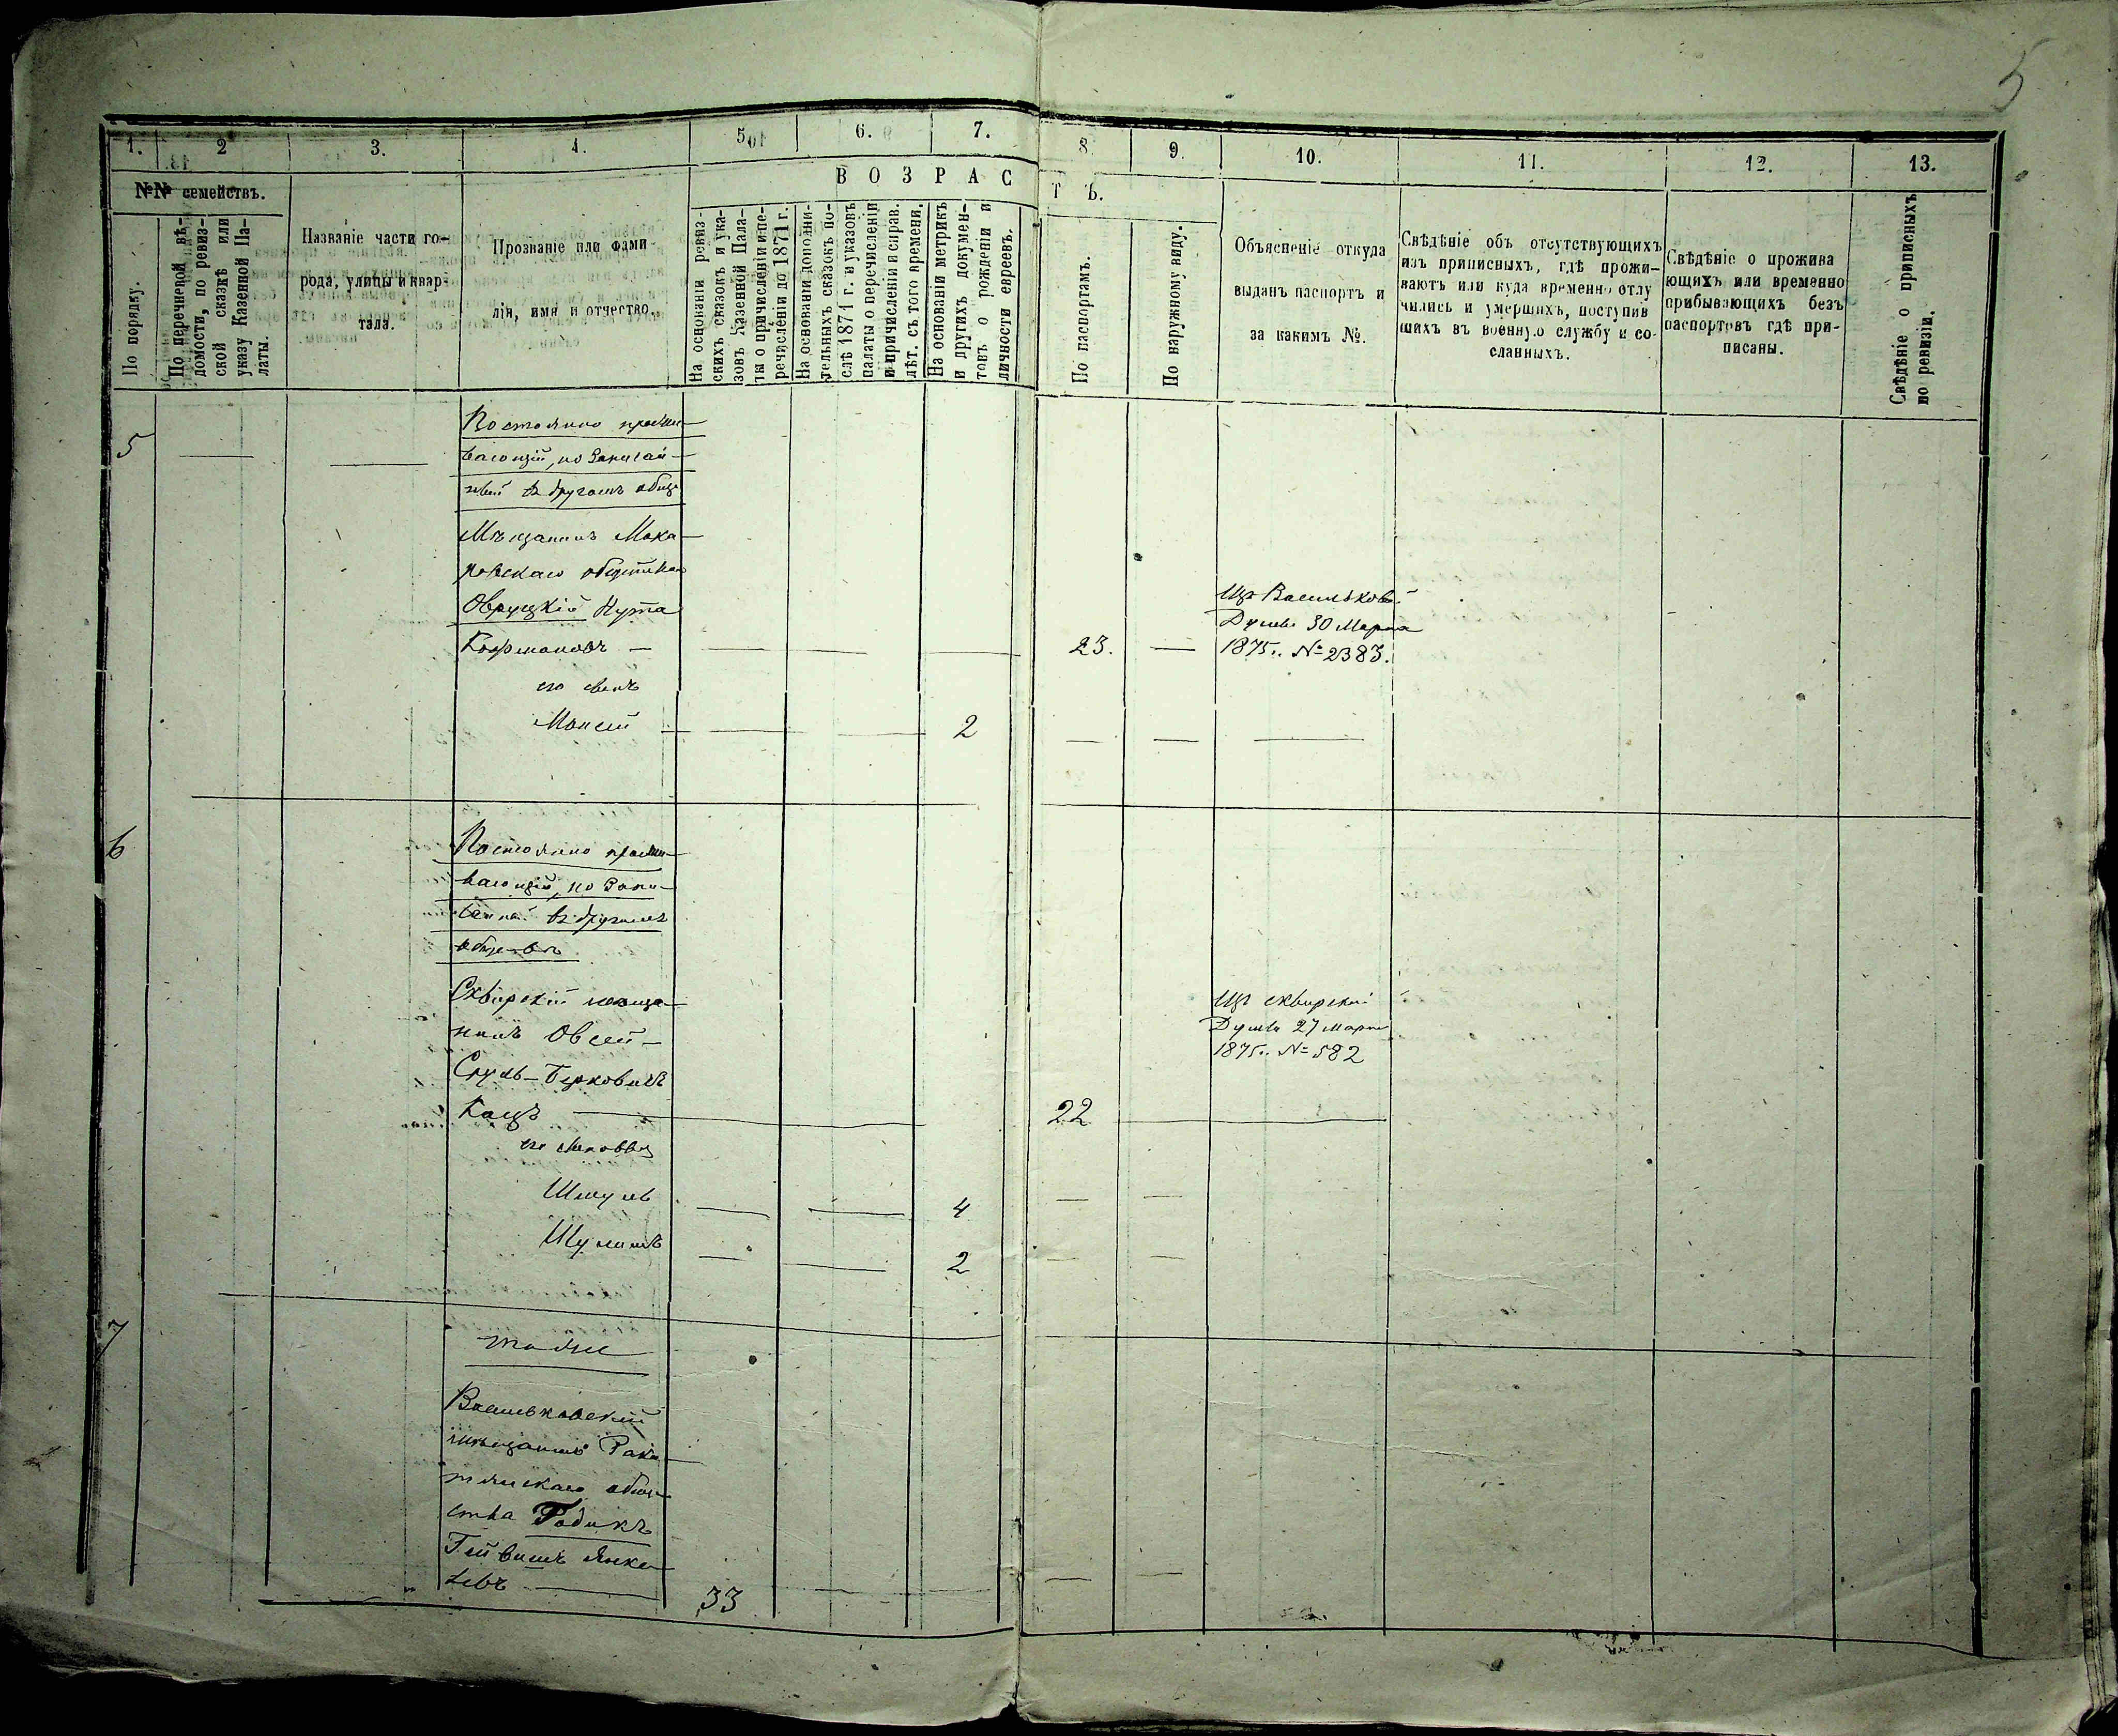 5
1.
2
3.
4.
5
6.
7.
8.
9.
10.
11.
12.
13.
№№ семействъ.
ВОЗРАСТЪ.
По порядку.
По перечневой вѣ-
домости, по ревиз-
ской сказкѣ или
указу Казенной Па-
латы.
Названіе части го-
рода, улицы и квар-
тала.
Прозваніе или фами-
лія, имя и отчество.
На основаніи ревиз-
скихъ сказокъ и ука-
зовъ Казенной Пала-
ты о причисленіи и пе-
речисленіи до 1871 г.
На основаніи дополни-
тельныхъ сказокъ по-
слѣ 1871 г. и указовъ
палаты о перечисленіи
и причисленіи и справ.
лѣт. съ того времени.
На основаніи метрикъ
и другихъ докумен-
товъ о рожденіи и
личности евреевъ.
По паспортамъ.
По наружному виду.
Объясненіе откуда
выданъ паспортъ и
за какимъ №.
Свѣдѣніе объ отсутствующихъ
изъ приписныхъ, гдѣ прожи-
ваютъ или куда временно отлу
чились и умершихъ, поступив
шихъ въ военную службу и со-
сланныхъ.
Свѣдѣніе о прожива
ющихъ или временно
прибывающихъ безъ
паспортовъ гдѣ при-
писаны.
Свѣдѣніе о приписныхъ
по ревизіи.
5
Постоянно прожи-
вающій, но записан-
ный въ другомъ обще
Мѣщанинъ Мака-
ровскаго общества
Овруцкій Нута
Кофмановъ — 23.
Изъ Васильков
Думы 30 Марта
1875 г. № 2383.
его сынъ
Моисей 2
6
Постоянно прожи-
вающій, но запи-
санный въ другомъ
общ-вѣ
Сквирскій мѣща-
нинъ Овсей-
Сруль-Берковичъ
Кацъ 22
Изъ сквирской
Думы 27 Марта
1875 г. № 582
его сыновья
Шмуль 4
Шулимъ 2
7
тоже
Васильковскій
мѣщанинъ Раки-
тянскаго обще-
ства Годикъ
Лейвишъ Янке-
левъ 33